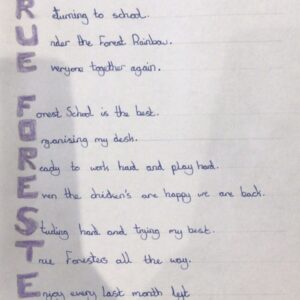 Returning to school.
Under the Forest Rainbow.
Everyone together again.
Forest School is the best.
Organising my desk.
Ready to work hard and play hard.
Even the chicken's are happy we are back.
Studing hard and trying my best.
True Foresters all the way.
Enjoy every last month left